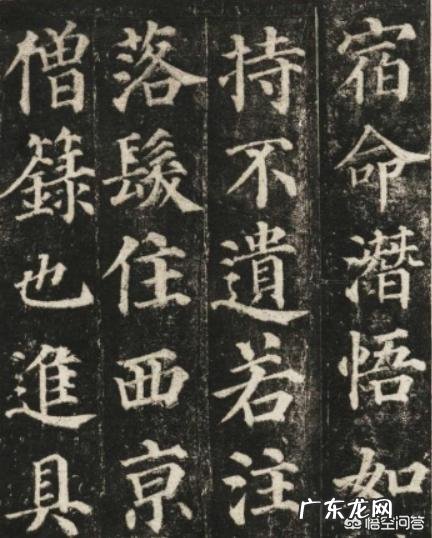 宿命潜悟如
持不遺若注
落髮住西京
僧籙也進具
广东龙网
悟空问答